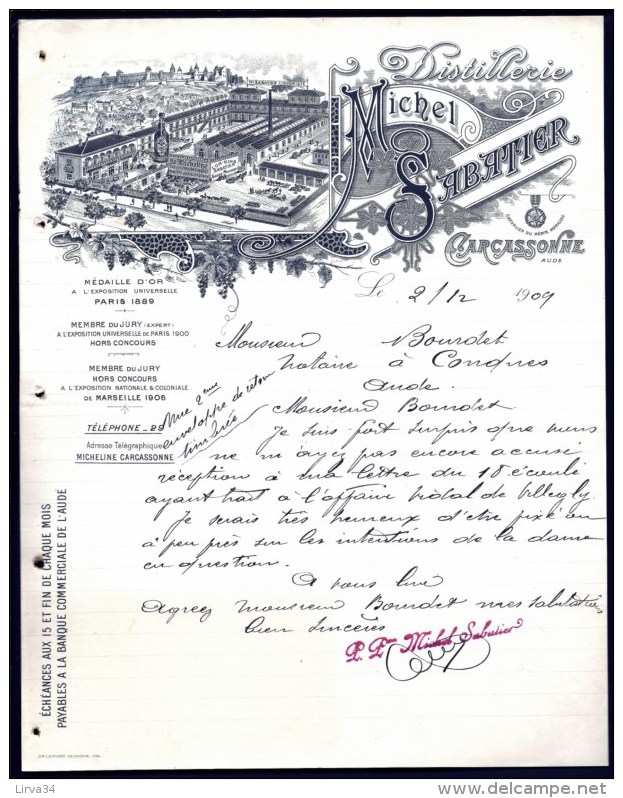 Distillerie
Michel
Sabatier
Carcassonne
Aude
CHEVALIER DU MÉRITE AGRICOLE
OR-KINA
MÉDAILLE D'OR
A L'EXPOSITION UNIVERSELLE
PARIS 1889
MEMBRE DU JURY (EXPERT)
A L'EXPOSITION UNIVERSELLE DE PARIS 1900
HORS CONCOURS
MEMBRE DU JURY
HORS CONCOURS
A L'EXPOSITION NATIONALE & COLONIALE
DE MARSEILLE 1906
TÉLÉPHONE _ 29
Adresse Télégraphique
MICHELINE CARCASSONNE
ÉCHÉANCES AUX 15 ET FIN DE CHAQUE MOIS
PAYABLES A LA BANQUE COMMERCIALE DE L'AUDE
Le 2/12 1909
Monsieur Bourdet
notaire à Conques
Aude.
mue 2eme
enveloppe de retour
timbrée
Monsieur Bourdet
Je suis fort surpris que vous
ne m'ayez pas encore accusé
réception à ma lettre du 18 écoulé
ayant trait à l'affaire Vidal de Villegly.
Je serais très heureux d'être fixé ou
à peu près sur les intentions de la dame
en question.
A vous lire
Agréez Monsieur Bourdet mes salutations
bien sincères
P. Pon Michel Sabatier
Lirva34
delcampe.net